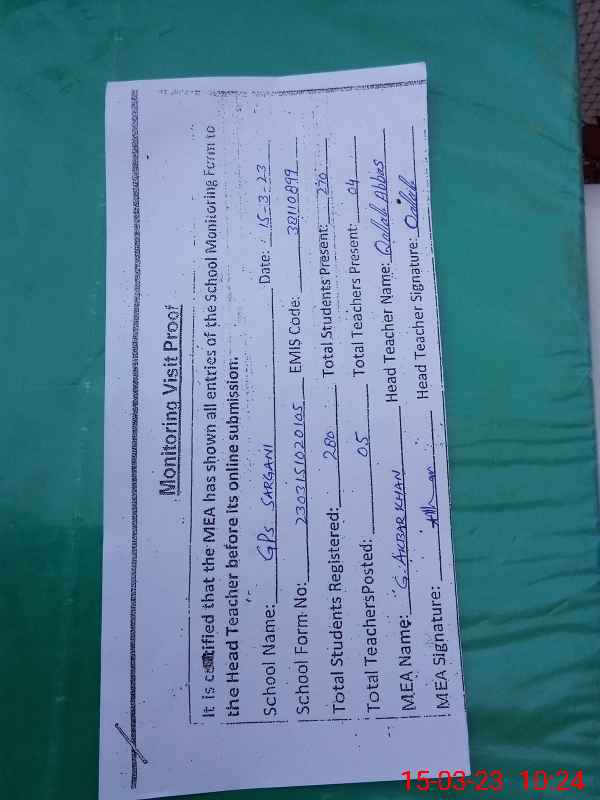 Monitoring Visit Proof
It is certified that the MEA has shown all entries of the School Monitoring Form to
the Head Teacher before its online submission.
School Name: GPS SARGANI Date: 15-3-23
School Form No: 2303151020105 EMIS Code: 38110899
Total Students Registered: 280 Total Students Present: 270
Total TeachersPosted: 05 Total Teachers Present: 04
MEA Name: G. AKBAR KHAN Head Teacher Name: Qalab Abbas
MEA Signature: Head Teacher Signature: Qalab
15-03-23 10:24